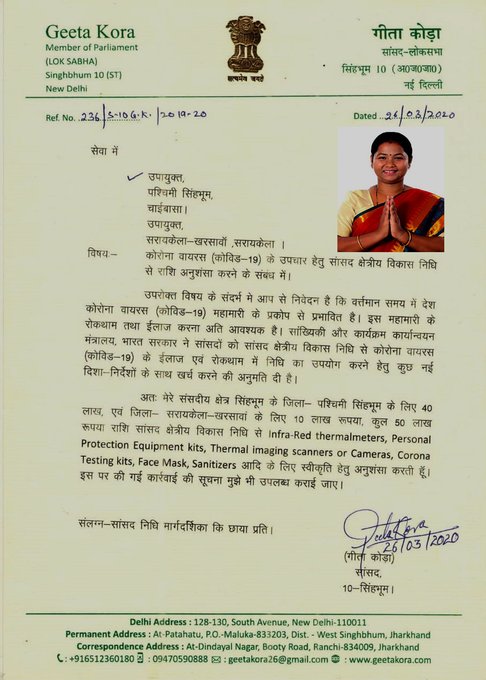 Geeta Kora
Member of Parliament
(LOK SABHA)
Singhbhum 10 (ST)
New Delhi
सत्यमेव जयते
गीता कोड़ा
सांसद-लोकसभा
सिंहभूम 10 (अ0ज0जा0)
नई दिल्ली
Ref. No. 236/S-10 G.K./2019-20
Dated ..26/03/2020
सेवा में
उपायुक्त,
पश्चिमी सिंहभूम,
चाईबासा।
उपायुक्त,
सरायकेला–खरसावाँ ,सरायकेला ।
विषय:– कोरोना वायरस (कोविड–19) के उपचार हेतु सांसद क्षेत्रीय विकास निधि
से राशि अनुशंसा करने के संबंध में।
उपरोक्त विषय के संदर्भ मे आप से निवेदन है कि वर्त्तमान समय में देश
कोरोना वायरस (कोविड–19) महामारी के प्रकोप से प्रभावित है। इस महामारी के
रोकथाम तथा ईलाज करना अति आवश्यक है। सांख्यिकी और कार्यक्रम कार्यान्वयन
मंत्रालय, भारत सरकार ने सांसदों को सांसद क्षेत्रीय विकास निधि से कोरोना वायरस
(कोविड–19) के ईलाज एवं रोकथाम में निधि का उपयोग करने हेतु कुछ नई
दिशा–निर्देशों के साथ खर्च करने की अनुमति दी है।
अतः मेरे संसदीय क्षेत्र सिंहभूम के जिला– पश्चिमी सिंहभूम के लिए 40
लाख, एवं जिला– सरायकेला-खरसावां के लिए 10 लाख रूपया, कुल 50 लाख
रूपया राशि सांसद क्षेत्रीय विकास निधि से Infra-Red thermalmeters, Personal
Protection Equipment kits, Thermal imaging scanners or Cameras, Corona
Testing kits, Face Mask, Sanitizers आदि के लिए स्वीकृति हेतु अनुशंसा करती हूँ।
इस पर की गई कार्रवाई की सूचना मुझे भी उपलब्ध कराई जाए।
संलग्न–सांसद निधि मार्गदर्शिका कि छाया प्रति।
Geeta Kora
26/03/2020
(गीता कोड़ा)
सांसद,
10–सिंहभूम।
Delhi Address : 128-130, South Avenue, New Delhi-110011
Permanent Address : At-Patahatu, P.O.-Maluka-833203, Dist. - West Singhbhum, Jharkhand
Correspondence Address : At-Dindayal Nagar, Booty Road, Ranchi-834009, Jharkhand
: +916512360180 : 09470590888 : geetakora26@gmail.com : www.geetakora.com